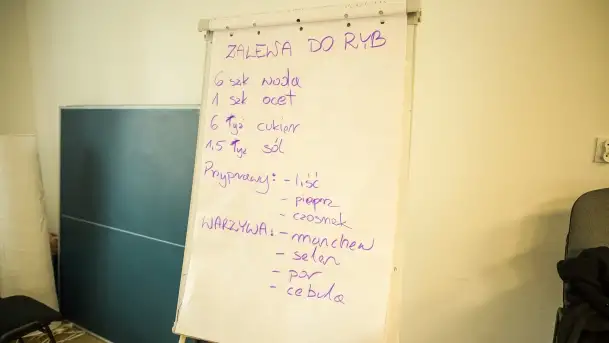 ZALEWA DO RYB
6 szk woda
1 szk ocet
6 łyż cukier
1,5 łyż sól
Przyprawy: - liść
- pieprz
- czosnek
WARZYWA: - marchew
- seler
- por
- cebula